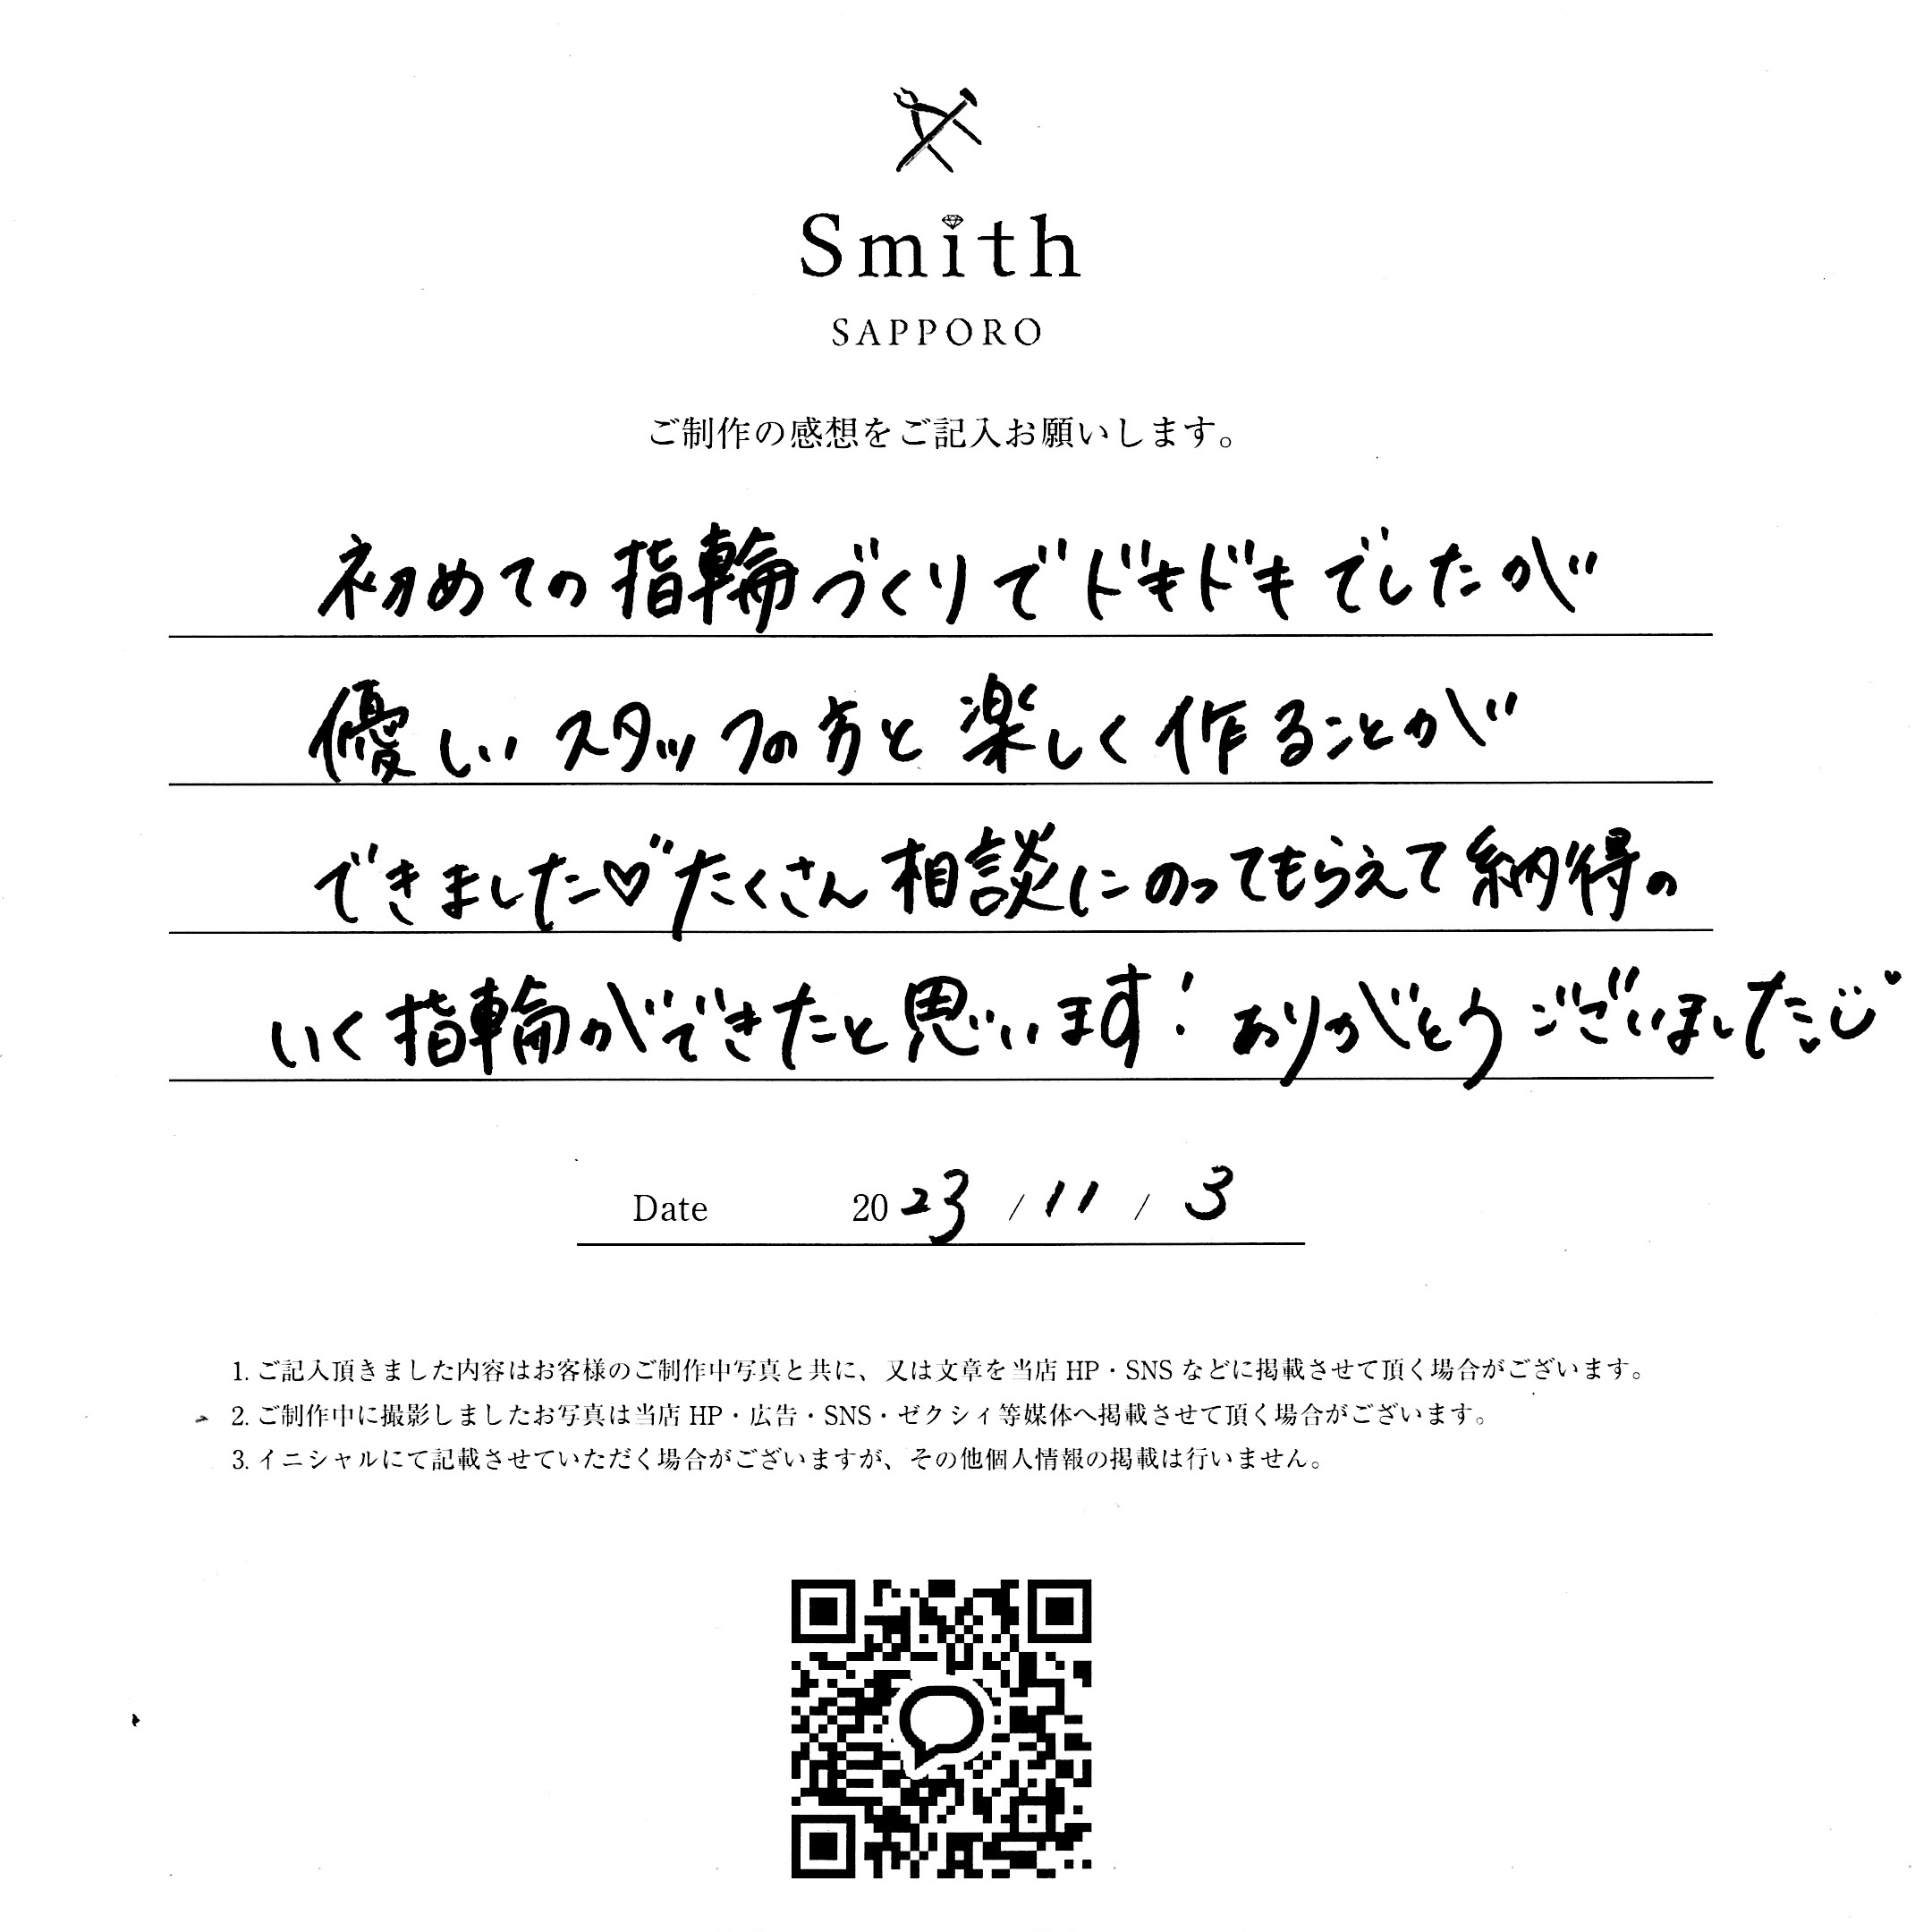 Smith
SAPPORO
ご制作の感想をご記入お願いします。
初めての指輪づくりでドキドキでしたが
優しいスタッフの方と楽しく作ることが
できました♡たくさん相談にのってもらえて納得の
いく指輪ができたと思います！ありがとうございました
Date 2023 / 11 / 3
1. ご記入頂きました内容はお客様のご制作中写真と共に、又は文章を当店 HP・SNS などに掲載させて頂く場合がございます。
2. ご制作中に撮影しましたお写真は当店 HP・広告・SNS・ゼクシィ等媒体へ掲載させて頂く場合がございます。
3. イニシャルにて記載させていただく場合がございますが、その他個人情報の掲載は行いません。